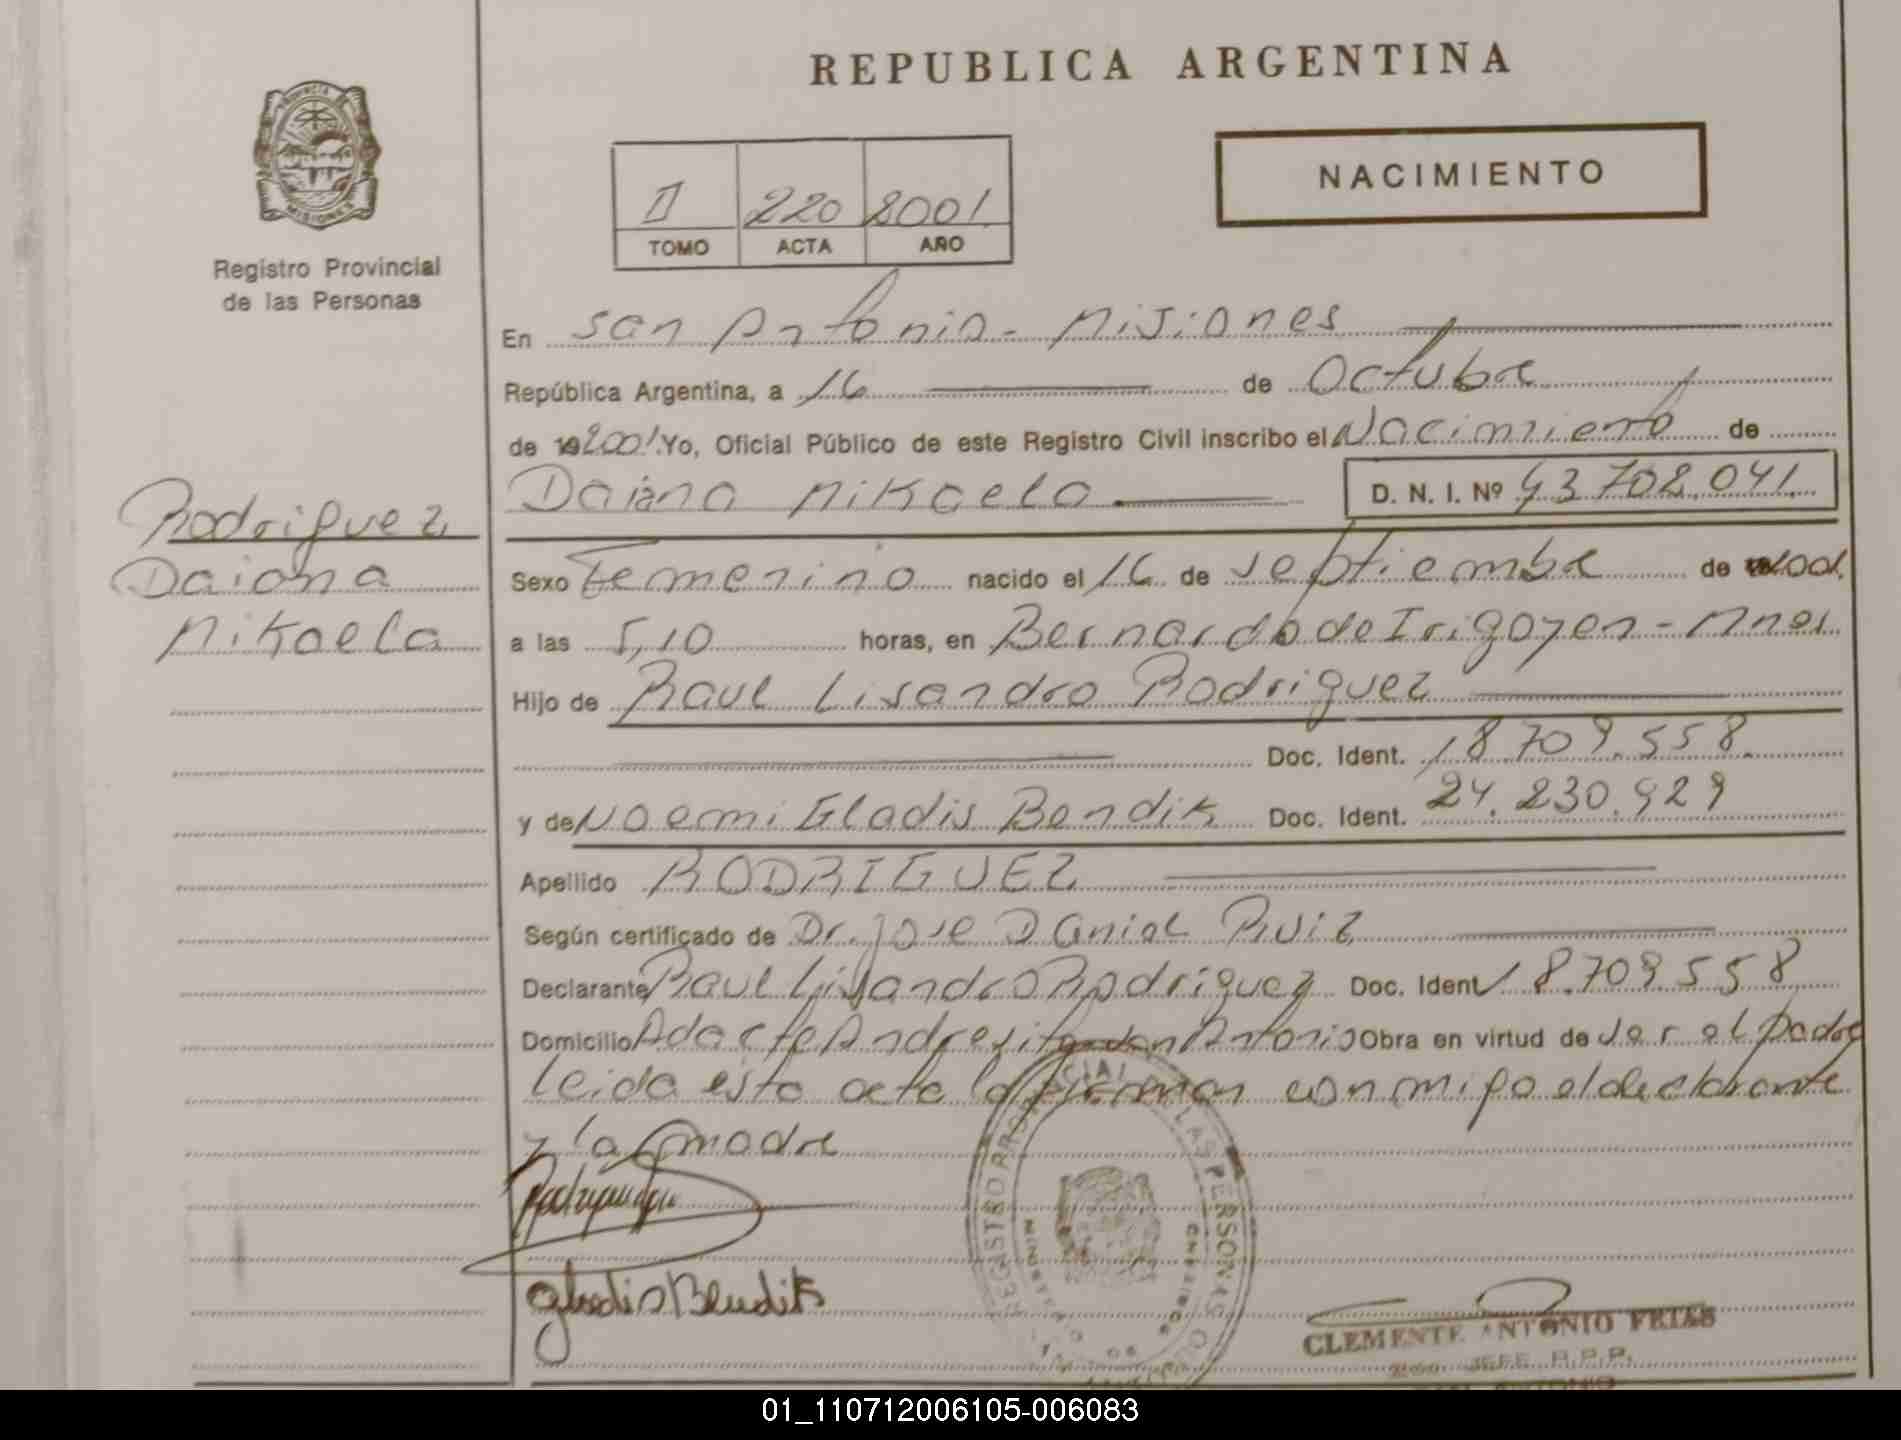 REPUBLICA ARGENTINA
PROVINCIA DE
MISIONES
Registro Provincial
de las Personas
II 220 2001
TOMO ACTA AÑO
NACIMIENTO
En San Antonio - Misiones
República Argentina, a 16 de Octubre
de 19 2001 Yo, Oficial Público de este Registro Civil inscribo el Nacimiento de
Daiana Mikaela D. N. I. Nº 43.708.041
Rodriguez
Daiana
Mikaela
Sexo Femenino nacido el 16 de Septiembre de 2001
a las 5,10 horas, en Bernardo de Irigoyen - Mnes
Hijo de Raul Lisandro Rodriguez
Doc. Ident. 18.709.558
y de Noemi Gladis Bendik Doc. Ident. 24.230.929
Apellido RODRIGUEZ
Según certificado de Dr. Jose Daniel Ruiz
Declarante Raul Lisandro Rodriguez Doc. Ident 18.709.558
Domicilio Andresito San Antonio Obra en virtud de ser el padre
Leida esta acta la firman conmigo el declarante
y la madre
Gladis Bendik
REGISTRO PROVINCIAL DE LAS PERSONAS
CLEMENTE ANTONIO FRIAS
JEFE R.P.P.
SAN ANTONIO
01_110712006105-006083